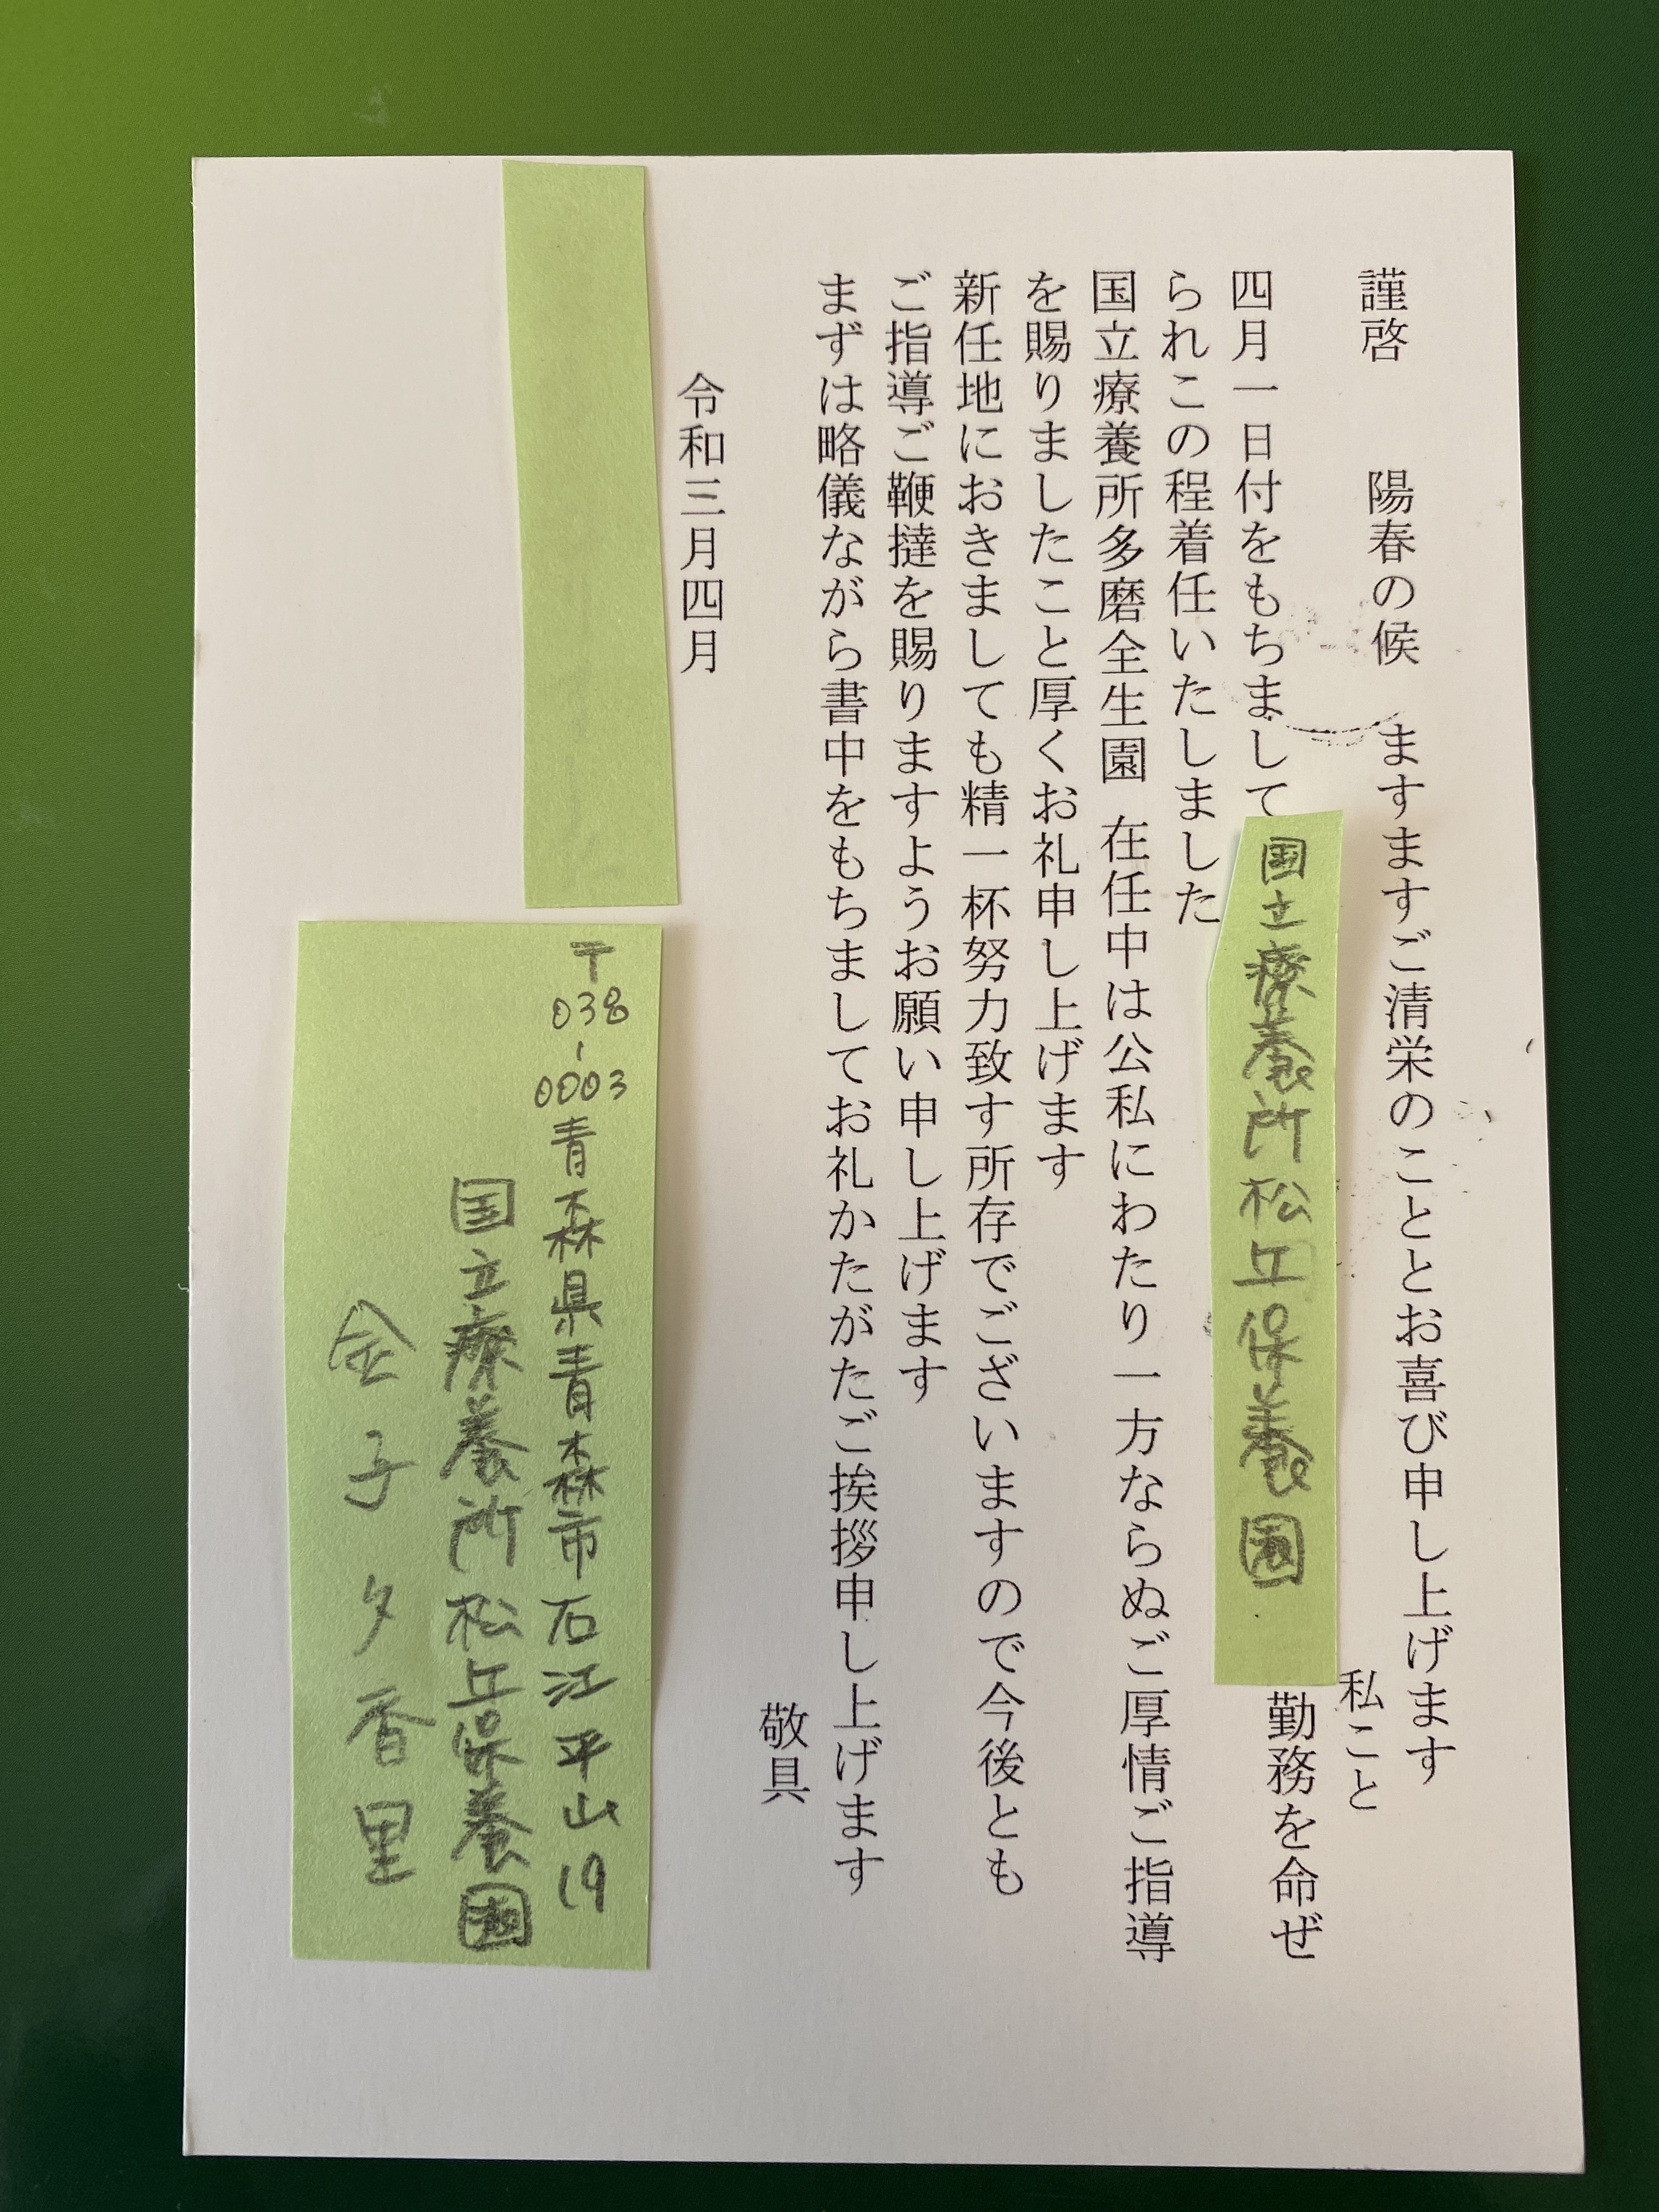 謹啓　陽春の候　ますますご清栄のこととお喜び申し上げます
私こと
四月一日付をもちまして国立療養所松丘保養園勤務を命ぜ
られこの程着任いたしました
国立療養所多磨全生園 在任中は公私にわたり一方ならぬご厚情ご指導
を賜りましたこと厚くお礼申し上げます
新任地におきましても精一杯努力致す所存でございますので今後とも
ご指導ご鞭撻を賜りますようお願い申し上げます
まずは略儀ながら書中をもちましてお礼かたがたご挨拶申し上げます
敬具
令和三月四月
〒038-0003青森県青森市石江平山19
国立療養所松丘保養園
金子夕香里